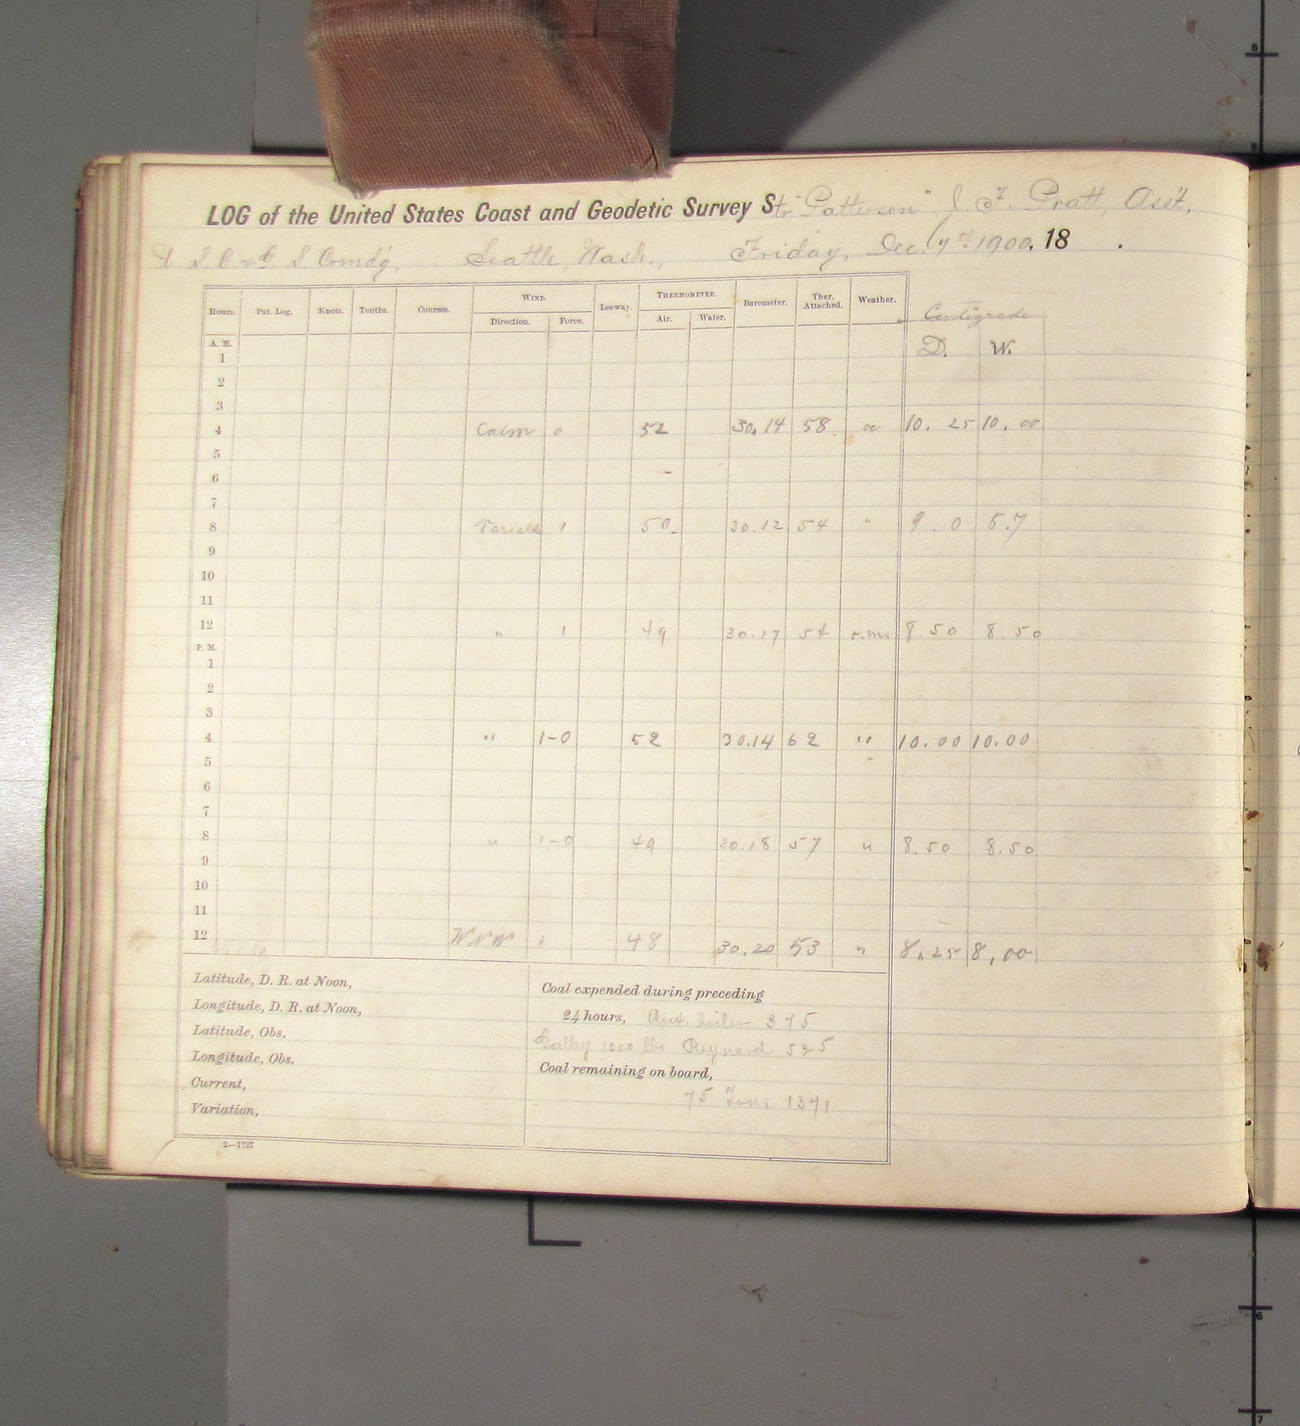 LOG of the United States Coast and Geodetic Survey Str "Patterson" J. F. Pratt, Ass't,
U. S. C. & G. S. Comd'g, Seattle, Wash., Friday, Dec. 7th 1900. 18 .
Hours. Pat. Log. Knots. Tenths. Courses. WIND. Leeway. THERMOMETER. Barometer. Ther. Attached. Weather. Centigrade
Direction. Force. Air. Water.
A. M. D. W.
1
2
3
4 Calm 0 52 30.14 58 oc 10. 25 10. 00
5
6
7
8 Variable 1 50 30.12 54 " 9. 0 5.7
9
10
11
12 " 1 49 30.17 54 8.50 8.50
P. M.
1
2
3
4 " 1-0 52 30.14 62 " 10.00 10.00
5
6
7
8 " 1-0 49 30.18 57 " 8.50 8.50
9
10
11
12 WNW 1 48 30.20 53 " 8.25 8.00
Latitude, D. R. at Noon,
Longitude, D. R. at Noon,
Latitude, Obs.
Longitude, Obs.
Current,
Variation,
Coal expended during preceding
24 hours, Aux. boiler 375
Galley 1000 lbs Reynard 525
Coal remaining on board,
75 Tons 1371
2—1727
6
5
6
7